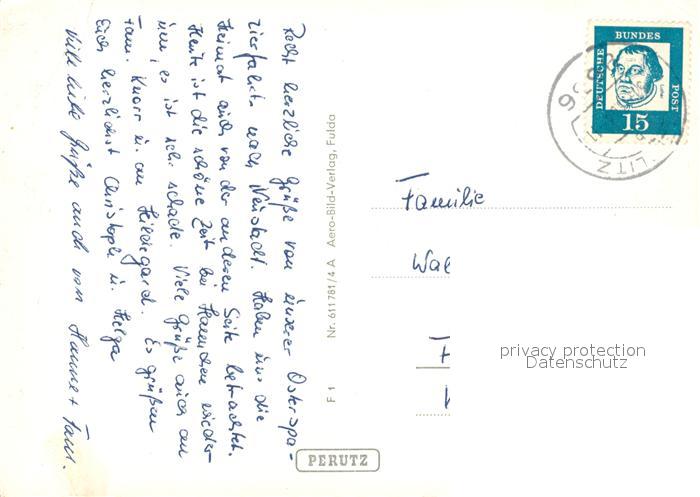 Recht herzliche Grüße von unserer Osterspa-
zierfahrt nach Neustadt. Haben uns die
Heimat auch von der anderen Seite betrachtet.
Heute ist die schöne Zeit bei Hannchen wieder
um, es ist sehr schade. Viele Grüße auch an
Fam. Knorr u. an Hildegard. Es grüßen
Euch herzlichst Christoph u. Helga
Viele liebe Grüße auch von Hanne + Fam.
F 1 Nr. 611781/4 A Aero-Bild-Verlag, Fulda
PERUTZ
DEUTSCHE BUNDES POST
15
LITZ
Familie
Wal
privacy protection
Datenschutz